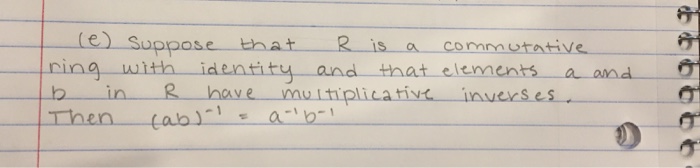 (e) Suppose that R is a commutative
ring with identity and that elements a and
b in R have multiplicative inverses.
Then (ab)⁻¹ = a⁻¹b⁻¹